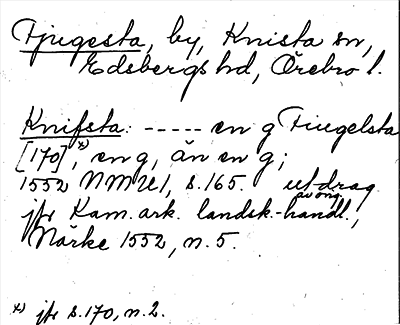 Tjugesta, by, Knista sn,
Edsbergs hd, Örebro l.
Knifsta: ----- en g Tiugelsta
[170],x) en g, än en g;
1552 NMU1, s.165. utdrag
av orig.
jfr Kam. ark. landsk.-handl.,
Närke 1552, n. 5.
x) jfr s.170, n.2.